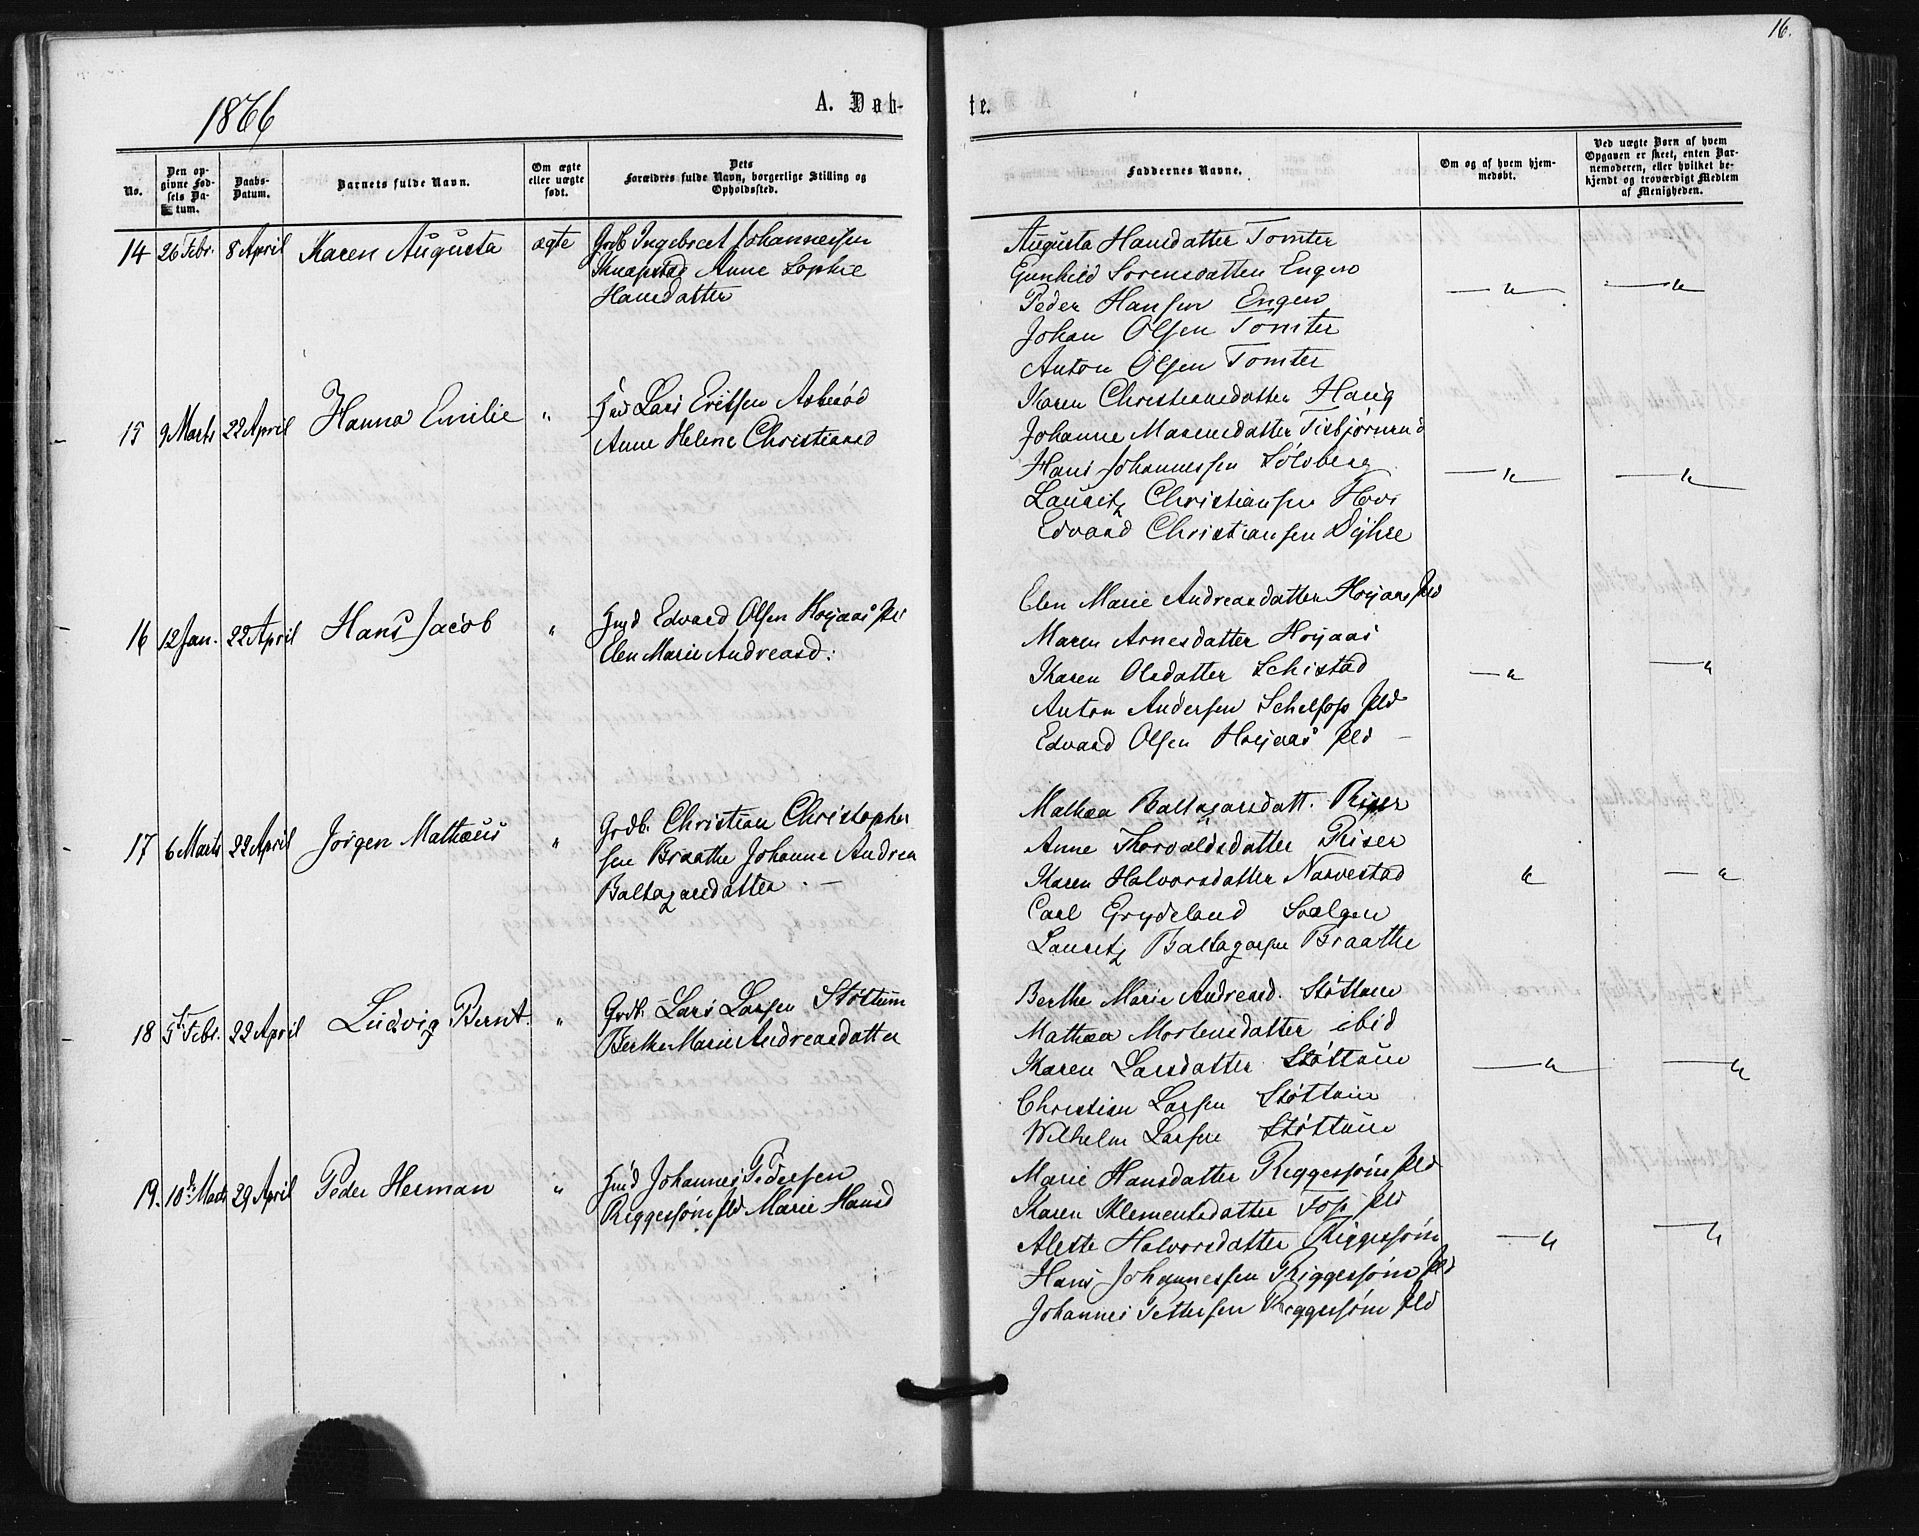 16.
1866
A. Døb-
te.
No.
Den op-
givne Fød-
sels Da-
tum.
Daabs-
Datum.
Barnets fulde Navn.
Om ægte
eller uægte
født.
Dets
Forældres fulde Navn, borgerlige Stilling og
Opholdssted.
Faddernes Navne.
Om og af hvem hjem-
medøbt.
Ved uægte Børn af hvem
Opgaven er skeet, enten Bar-
nemoderen, eller hvilket be-
kjendt og troværdigt Medlem
af Menigheden.
14 26 Febr. 8 April Karen Augusta ægte
Grdb Ingebret Johannessen
Knapstad Anne Sophie
Hansdatter
Augusta Hansdatter Tomter
Gunhild Sorensdatter Engen
Peder Hansen Engen
Johan Olsen Tomter
Anton Olsen Tomter
15 9 Marts 22 April Hanna Emilie "
Lars Eriksen Asberød
Anne Helene Christiansd
Karen Christiansdatter Haug
Johanne Marensdatter
Hans Johannessen Solsberg
Lauritz Christiansen Hovi
Edvard Christiansen
16 12 Jan. 22 April Hans Jacob "
Edvard Olsen Hoijaas
Elen Marie Andreasd:
Elen Marie Andreasdatter Hoijaas
Maren Arnesdatter Hoijaas
Karen Olsdatter Schistad
Anton Andersen
Edvard Olsen Hoijaas
17 6 Marts 22 April Jörgen Mathæus "
Grdb. Christian Christopher
sen Braathe Johanne Andrea
Baltazarsdatter. —
Mathea Baltazarsdatt. Riser
Anne Thorvaldsdatter Riser
Karen Halvorsdatter Narvestad
Carl Grydeland
Lauritz Baltazarsen Braathe
18 5t Febr. 22 April Ludvig Bernt. "
Grdb. Lars Larsen Støttum
Berthe Marie Andreasdatter
Berthe Marie Andreasd. Støttum
Mathea Mortensdatter ibid
Karen Larsdatter Støttum
Christian Larsen Støttum
Wilhelm Larsen Støttum
19. 10de Marts 29 April Peder Herman "
Johannes Pedersen
Riggessøm Marie Hansd
Marie Hansdatter Riggessøm
Karen Klementsdatter Foss
Alette Halvorsdatter Riggessøm
Hans Johannessen Riggessøm
Johannes Pettersen Riggessøm